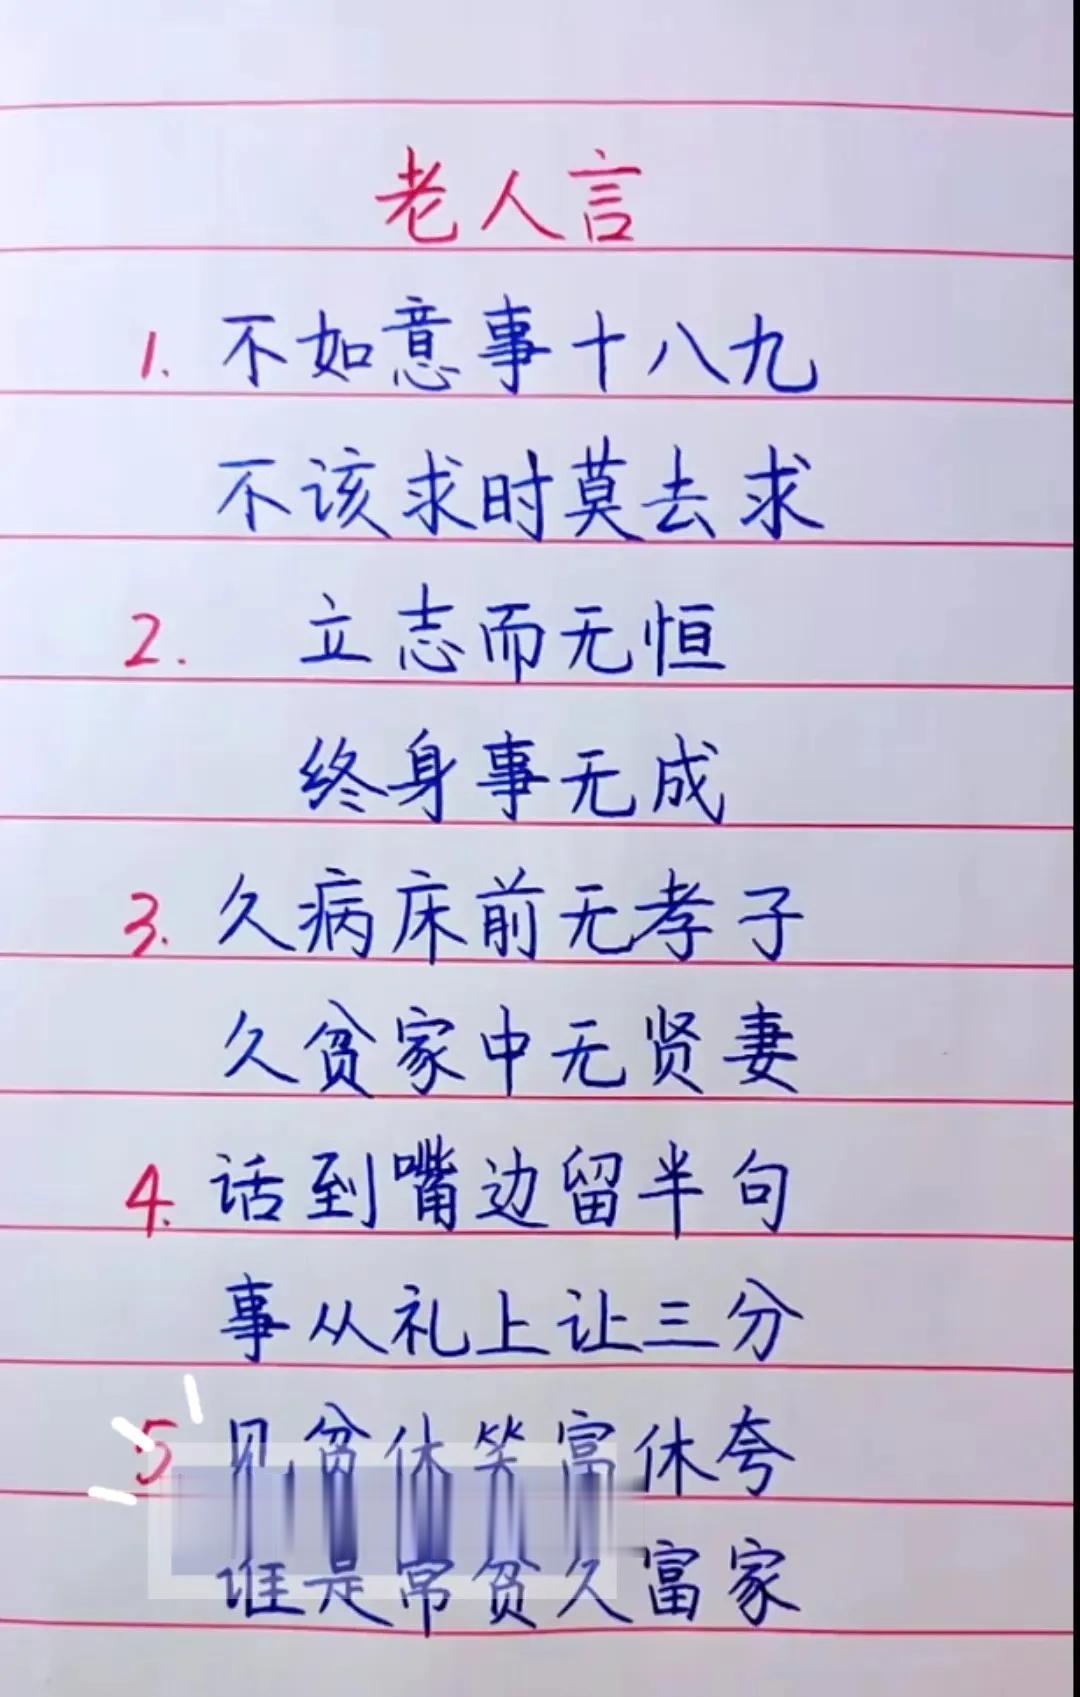 老人言
1. 不如意事十八九
不该求时莫去求
2. 立志而无恒
终身事无成
3. 久病床前无孝子
久贫家中无贤妻
4. 话到嘴边留半句
事从礼上让三分
5 见贫休笑富休夸
谁是常贫久富家